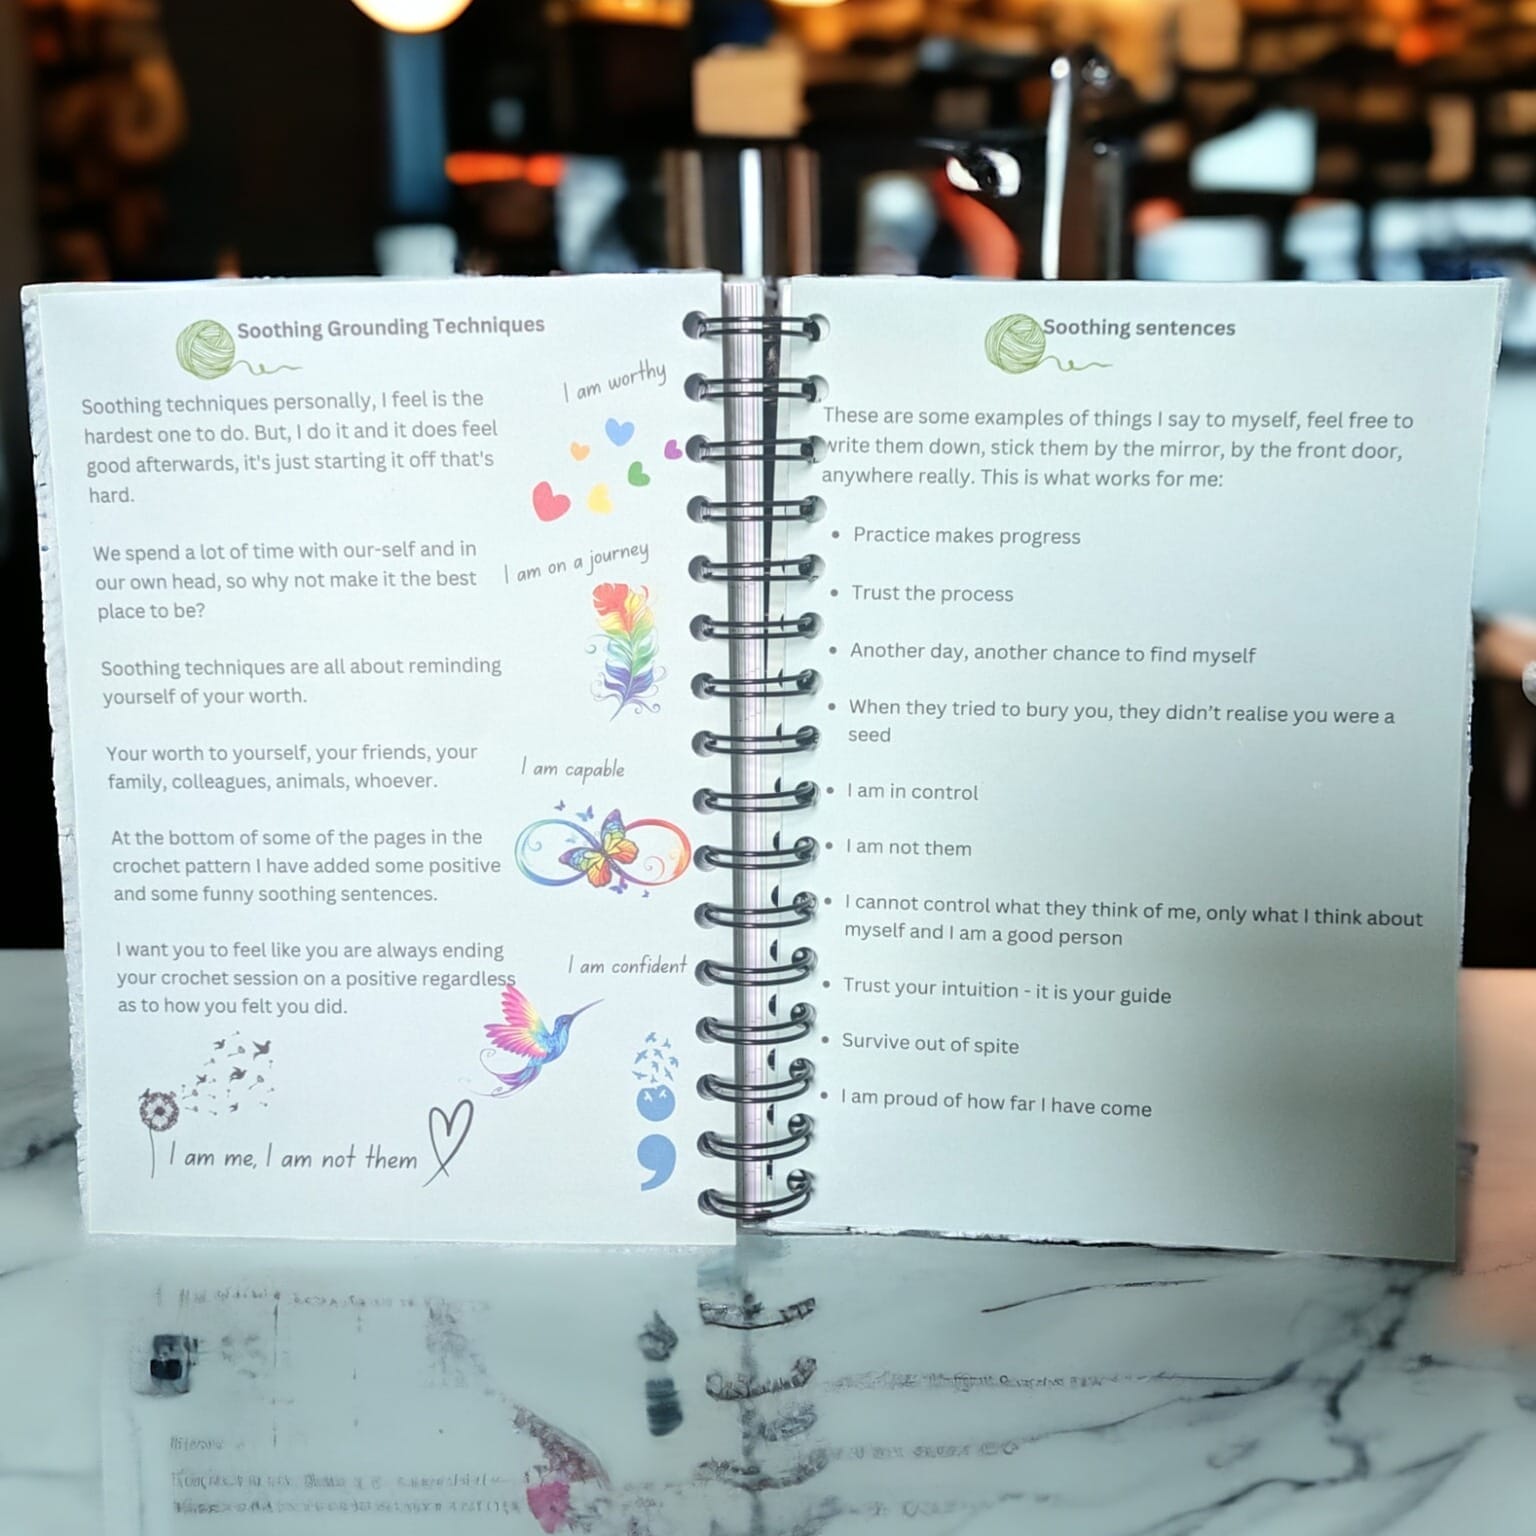 Soothing Grounding Techniques
Soothing techniques personally, I feel is the
hardest one to do. But, I do it and it does feel
good afterwards, it's just starting it off that's
hard.
We spend a lot of time with our-self and in
our own head, so why not make it the best
place to be?
Soothing techniques are all about reminding
yourself of your worth.
Your worth to yourself, your friends, your
family, colleagues, animals, whoever.
At the bottom of some of the pages in the
crochet pattern I have added some positive
and some funny soothing sentences.
I want you to feel like you are always ending
your crochet session on a positive regardless
as to how you felt you did.
I am worthy
I am on a journey
I am capable
I am confident
I am me, I am not them
Soothing sentences
These are some examples of things I say to myself, feel free to
write them down, stick them by the mirror, by the front door,
anywhere really. This is what works for me:
• Practice makes progress
• Trust the process
• Another day, another chance to find myself
• When they tried to bury you, they didn't realise you were a
seed
• I am in control
• I am not them
• I cannot control what they think of me, only what I think about
myself and I am a good person
• Trust your intuition - it is your guide
• Survive out of spite
• I am proud of how far I have come